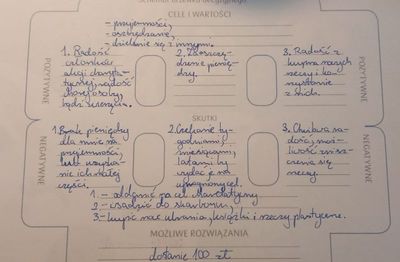 Schemat drzewka decyzyjnego
CELE I WARTOŚCI
- przyjemności,
- oszczędzanie,
- dzielenie się z innymi.
POZYTYWNE
1. Radość
członków
akcji charyta-
tywnej, radość
chorej osoby,
bądź zwierzęcia.
2. Zaoszczę-
dzone pienią-
dze.
3. Radość z
kupna nowych
rzeczy i ko-
rzystanie
z nich.
POZYTYWNE
SKUTKI
NEGATYWNE
1. Brak pieniędzy
dla mnie na
przyjemności,
lub uzyskanie
ich małej
części.
2. Czekanie ty-
godniami,
miesiącami,
latami by
wydać je na
upragniony cel.
3. Chwilowa ra-
dość, moż-
liwość znisz-
czenia się
rzeczy.
NEGATYWNE
1. - oddanie na cel charytatywny
2. - wsadzić do skarbonki,
3. - kupić nowe ubrania, książki i rzeczy plastyczne.
MOŻLIWE ROZWIĄZANIA
dostanie 100 zł